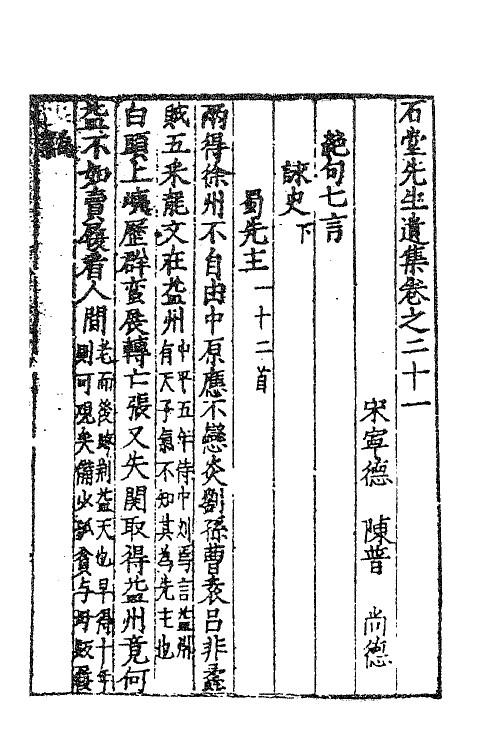 石堂先生遺集卷之二十一
宋寧德　陳普　尚德
絶句七言
詠史下
蜀先主一十二首
兩得徐州不自由中原應不戀炎劉孫曹袁呂非蟊
賊五采龍文在益州中平五年侍中刘焉言益州有天子氣不知其為先主也
白頭上巇歷群蠻展轉亡張又失關取得益州竟何
益不如賣履看人間老而後時剥益天也早得十年則可观矣備少孤貧与母販履